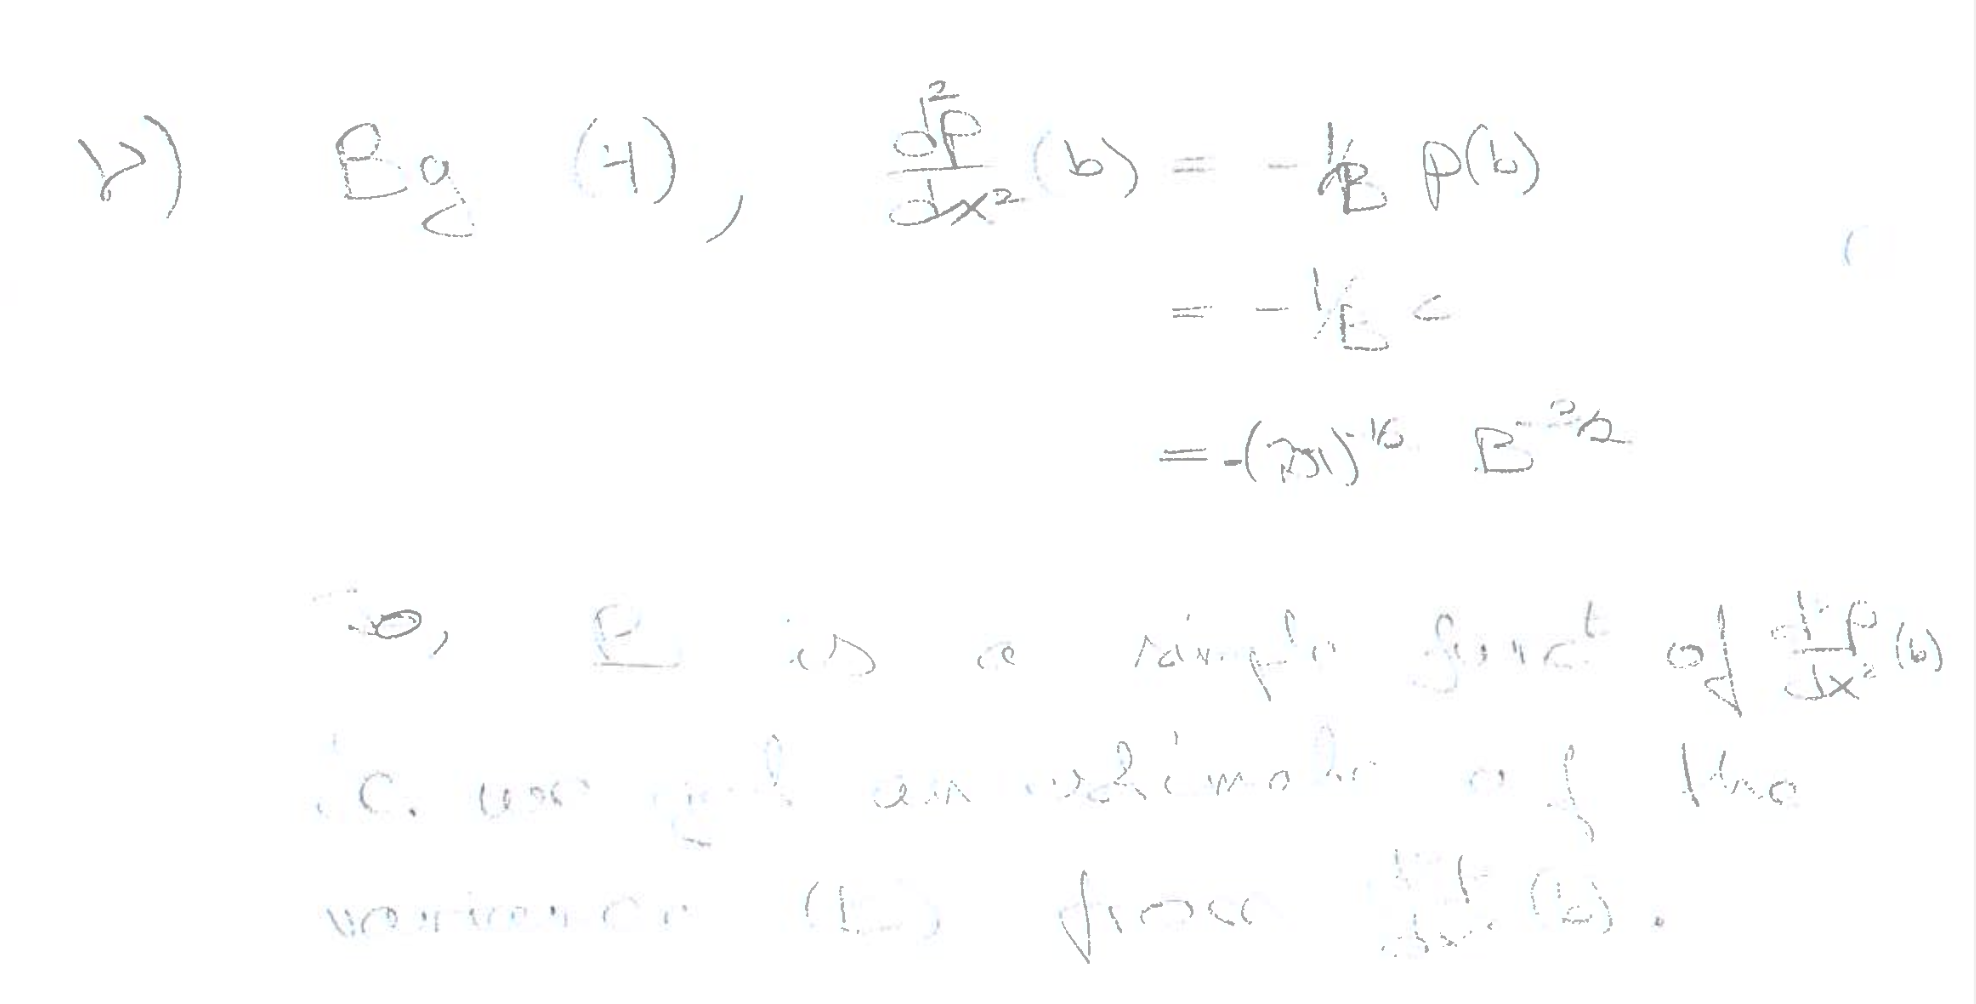 v) By (4), d²p/dx² (b) = - 1/B p(b)
= - 1/B c
= -(2π)^-1/2 B^-3/2
So, B is a simple funct of d²p/dx² (b)
i.e. we get an estimate of the
variance (B) from d²p/dx² (b).